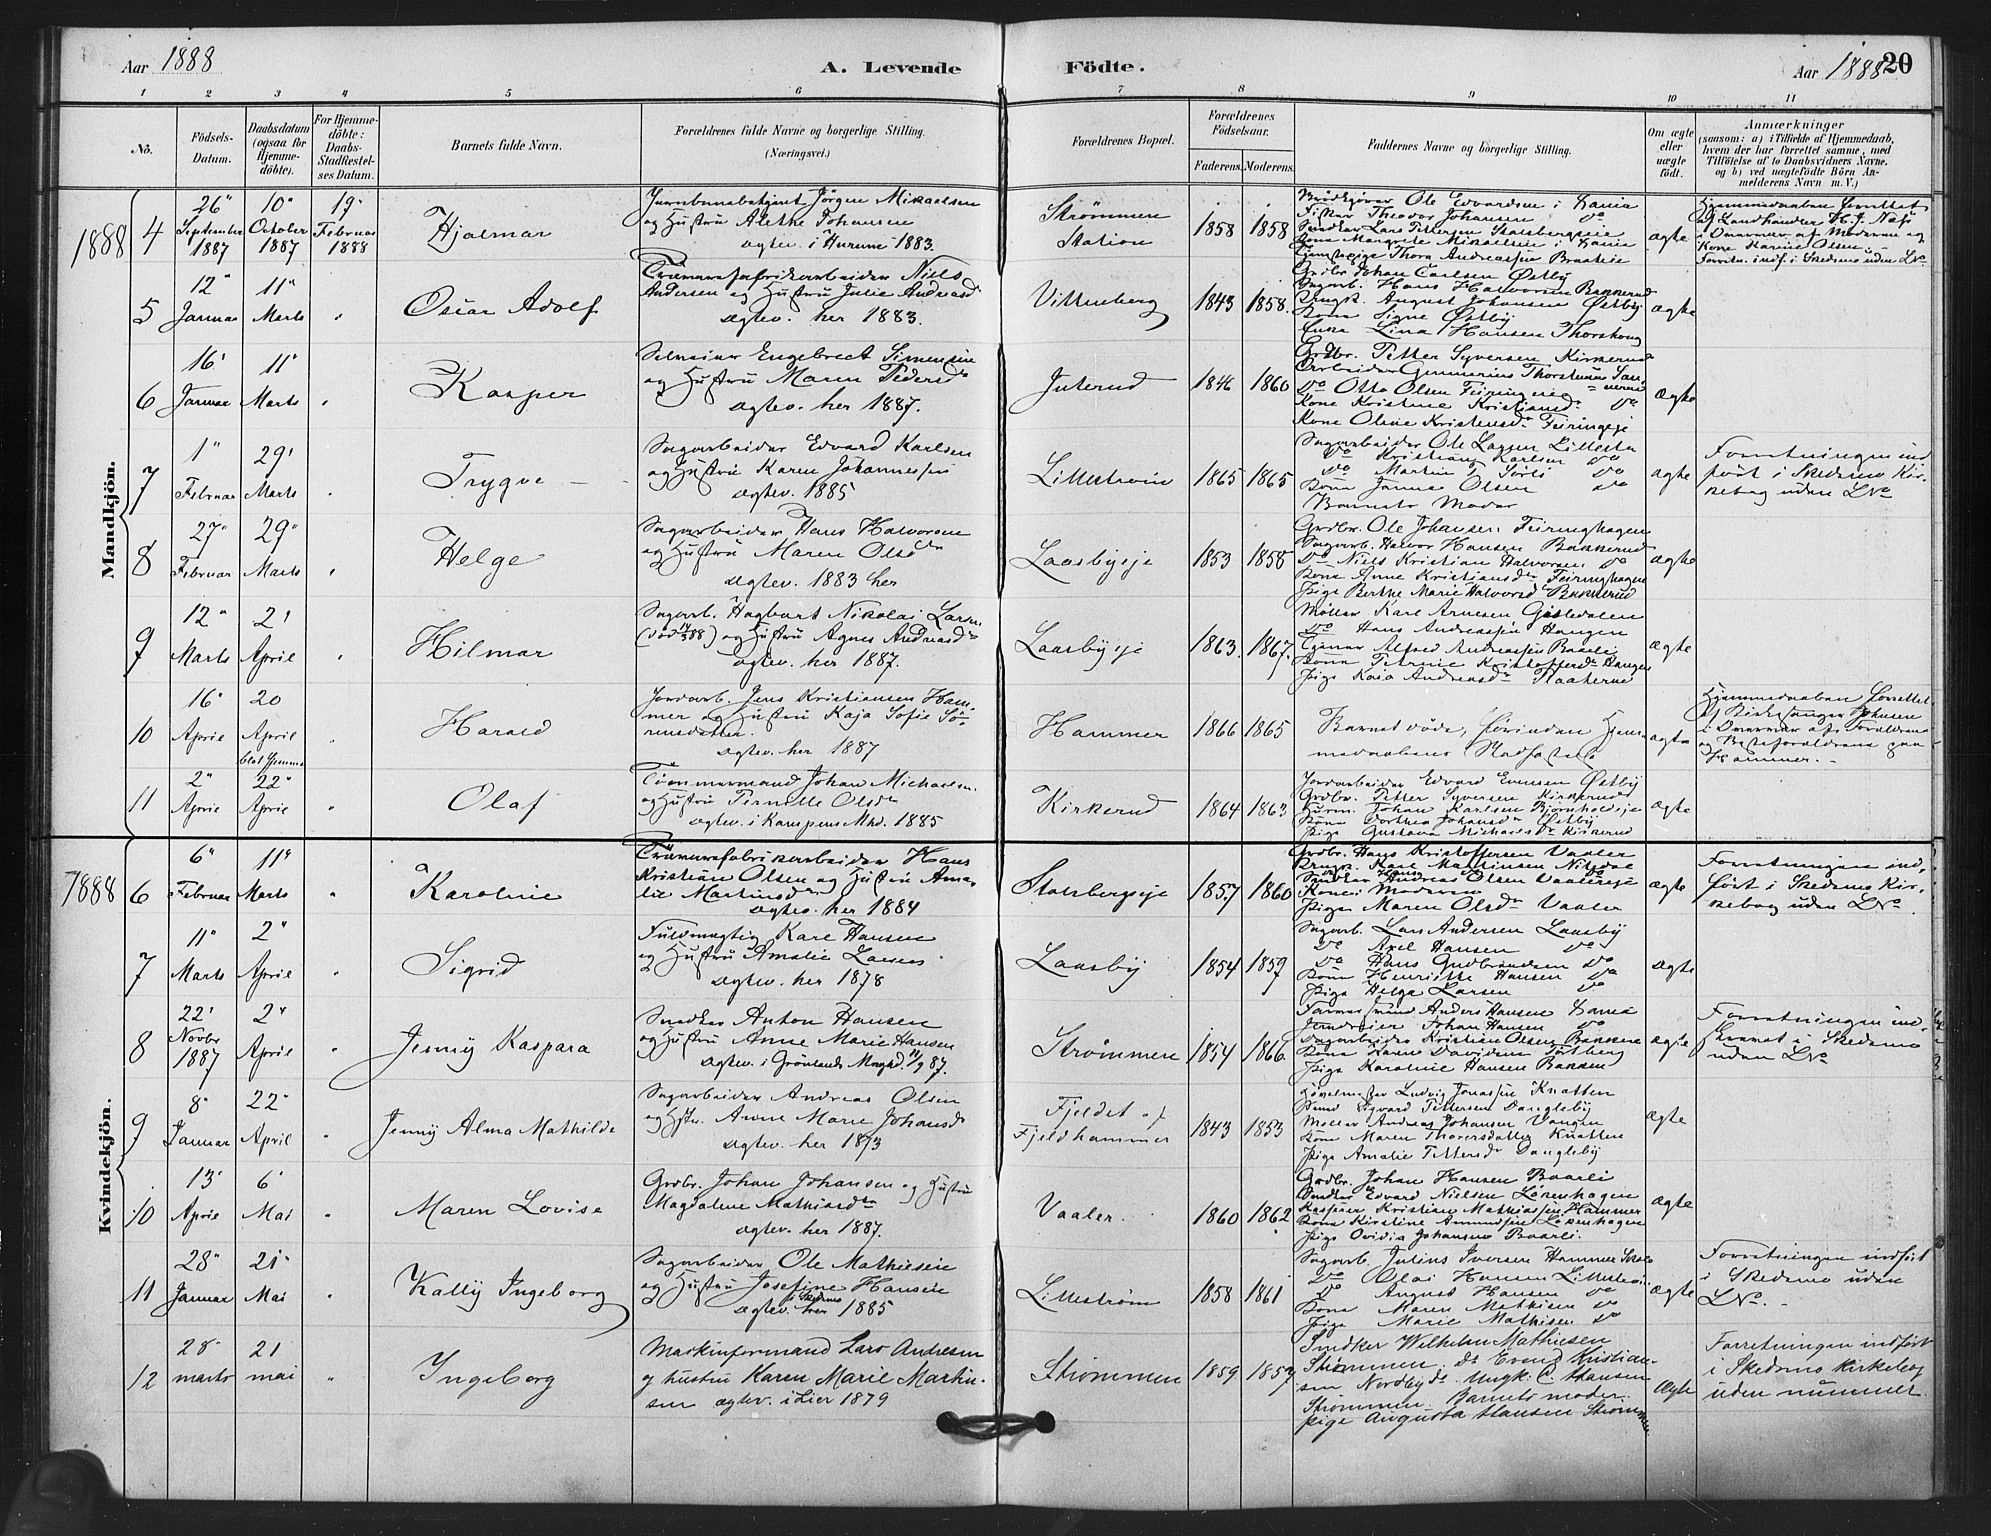 Aar 1888
A. Levende
Födte.
Aar 1888
20
1 2 3 4 5 6 7 8 9 10 11
No.
Födsels-
Datum.
Daabsdatum
(ogsaa for
Hjemme-
döbte).
For Hjemme-
döbte:
Daabs-
Stadfæstel-
ses Datum.
Barnets fulde Navn.
Forældrenes fulde Navne og borgerlige Stilling.
(Næringsvei.)
Forældrenes Bopæl.
Forældrenes
Födselsaar.
Faderens. Moderens.
Faddernes Navne og borgerlige Stilling.
Om ægte
eller
uægte
födt.
Anmærkninger
(saasom: a) i Tilfælde af Hjemmedaab,
hvem der har forrettet samme, med
Tilföielse af to Daabsvidners Navne.
og b) ved uægtefödte Börn An-
melderens Navn m. V.)
Mandkjön.
1888
4
26"
September
1887
10"
October
1887
19"
Februar
1888
Hjalmar
Jernbanebetjent Jörgen Mikaelsen
og Hustru Alethe Johansen
ægtev. i Hurum 1883.
Strømmen
Station
1858 1858
ægte
5
12"
Januar
11"
Marts
Oscar Adolf
Trævarefabrikarbeider Niels
Andersen og Hustru Julie Andreasd
ægtev. her 1883.
Vittenberg
1843 1858.
Grdbr. Johan Carlsen Østby
Sagarb. Hans Halvorsen Bakkerud
Ungk. August Johansen Østby
Kone Signe Østby
Enke Lina Hansen Thorshoug
ægte
6
16'
Januar
11"
Marts
Kasper
Selveier Engebrect Simensen
og Hustru Maren Pedersd
ægtev. her 1887.
Juterud
1846 1860
Grdbr. Petter Syversen Kirkerud
Do Otto Olsen Feiringeie
Kone Kristine Kristiansd Do
Kone Oline Kristensd Feiringeje
ægte
7
1"
Februar
29'
Marts
Trygve
Sagarbeider Edvard Karlsen
og Hustru Karen Johannessen
ægtev. 1885
Lillestrøm
1865 1865
Sagarbeider Ole Larsen Lillestr
Do Kristian Karlsen Do
Do Martin Sørli Do
Kone Janna Olsen Do
Barnets Moder
ægte
Forretningen ind
ført i Skedsmo Kir-
kebog uden LNo
8
27"
Februar
29"
Marts
Helge
Sagarbeider Hans Halvorsen
og Hustru Maren Olsd
ægtev. 1883 her
Laasbyeje
1853 1858
Grdbr. Ole Johansen Feiringhagen
Sagarb. Halvor Hansen Bakkerud
Do Niels Kristian Halvorsen Do
Kone Anne Kristiansd Feiringhagen
Pige Berthe Marie Halvorsd Bakkerud
ægte
9
12"
Marts
2'
April
Hilmar
Sagarb. Hagbart Nikolai Larsen
og Hustru Agnes Andreasd
ægtev. her 1887.
Laasbyeje
1863. 1867.
Møller Karl Arnesen Gisledalen
Do Hans Andreassen Haugen
Alfred Andreassen Baarli
Kone Petrine Kristoffersd Haugen
Pige Kaia Andreasd
ægte
10
16"
April
20
April
blot Hjemme
Harald
Jordarb. Jens Kristiansen Ham-
mer og Hustru Kaja Sofie Sö-
rensdatter.
ægtev. her 1887
Hammer
1866 1865
Barnet døde, førinden Hjem-
medaabens Stadfæstelse
ægte
Hjemmedaaben forrettet
af Kirkesanger Johnsen
i Nærvær af Forældrene
og Bestefoældrene paa
Hammer.
11
2"
April
22"
April
Olaf
Tømmermand Johan Michaelsen
og Hustru Pernille Olsd
ægtev. i Kampens Mhd. 1885
Kirkerud
1864 1863
Jordarbeider Edvard Evensen Østby
Grdbr. Petter Syversen Kirkerud
Husm. Johan Karlsen Bjørnholdseje
Kone Dorthea Johansd Østby
Pige Gustava Michaelsd Kirkerud
ægte
Kvindekjön.
1888
6
6"
Februar
11"
Marts
Karoline
Trævarefabrikarbeider Hans
Kristian Olsen og Hustru Ama-
lie Martinsd
ægtev. her 1884
Stalsbergeje
1857 1860
Grdbr. Hans Kristoffersen Vaaler
Kone: Moderen
Pige Maren Olsd Vaaler
ægte
Forretningen ind-
ført i Skedsmo Kir-
kebog uden LNo
7
11"
Marts
2"
April
Sigrid
Fuldmægtig Karl Hansen
og Hustru Amalie Larsen
ægtev. her 1878
Laasby
1854 1859
Sagarb. Lars Andersen Laasby
Do Axel Hansen Do
Do Hans Gudbrandsen Do
Kone Henriette Hansen Do
Pige Helga Larsen Do
ægte
8
22'
Novbr
1887
2"
April
Jenny Kaspara
Snedker Anton Hansen
og Hustru Anne Marie Hansen
ægtev. i Grønlands Mnghd. 11/9 87.
Strømmen
1854 1866
Formand Anders Hansen
Jordeier Johan Hansen Do
Sagarbeider Kristian Olsen Bakken
Kone Karen Davidsen Toftberg
Pige Karoline Hansen Bakken
ægte
Forretningen ind-
skrevet i Skedsmo
uden LNo
9
8"
Januar
22"
April
Jenny Alma Mathilde
Sagarbeider Andreas Olsen
og Hstr. Anne Marie Johansd
ægtev. her 1873
Fjeldet af
Fjeldhammer
1843 1853
Ludvig Jonassen Knatten
Smed Sigvard Pettersen Dangleby
Møller Andreas Johansen Vangen
Kone Maren Thorersdatter Knatten
Pige Amalie Pettersd Dangleby
ægte
10
13'
April
6'
Mai
Maren Lovise
Grdbr. Johan Johansen og Hustru
Magdalene Mathisesd
ægtev. her 1887.
Vaaler.
1860 1862
Grdbr. Johan Hansen Baarli
Snedker Edvard Nielsen Løkenhagen
Kasserer Kristian Mathiassen Hammer
Kone Kirstine Amundsen Løkenhagen
Pige Ovidia Johansen Baarli
ægte
11
28"
Januar
21"
Mai
Kally Ingeborg
Sagarbeider Ole Mathiesen
og Hustru Josefine Hansen
i Skedsmo
ægtev. her 1885
Lillestrøm
1858 1861
Sagarb. Julius Iversen Hammer
Do Olai Hansen Lillestrøm
Do August Hansen Do
Kone Maren Mathisen Do
Pige Marie Mathisen Do
ægte
Forretningen indført
i Skedsmo uden
LNo.
12
28"
marts
21
mai
Ingeborg
Maskinformand Lars Andresen
og hustru Karen Marie Martin-
sen ægtev. i Lier 1879
Strømmen
1859 1859
Snedker Wilhelm Mathiesen
Strømmen, do Evend Kristian-
sen Nordby do. Ungk. C. Hansen
Strømmen. Barnets moder.
Pige Augusta Hansen Strømmen.
Ægte
Forretningen indført
i Skedsmo kirkebog
uden nummer